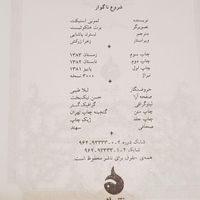 شروع ناگوار
نویسنده لمونی اسنیکت
تصویرگر برت هلکوئیست
مترجم نسترن پاشایی
ویراستار زهرا زرکش
چاپ سوم زمستان ۱۳۸۳
چاپ دوم تابستان ۱۳۸۲
چاپ اول پاییز ۱۳۸۱
تیراژ ۳۰۰۰ نسخه
حروف‌نگار لیلا طیبی
صفحه آرا حسن نیک‌بخت
لیتوگرافی گرافیک‌گستر
چاپ متن گنجینه چاپ تهران
چاپ جلد ژیک چاپ
صحافی سهند
شابک دوره ۲-۰۰-۹۳۳۳۳-۹۶۴
شابک ۰-۱۰-۹۳۳۳۳-۹۶۴
همه‌ی حقوق برای ناشر محفوظ است.